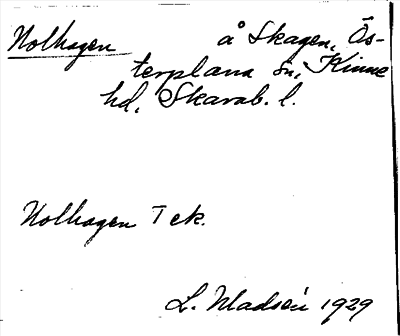 Nolhagen å Skagen, Ös-
terplana sn, Kinne
hd, Skarab. l.
Nolhagen T ek.
L. Madsén 1929